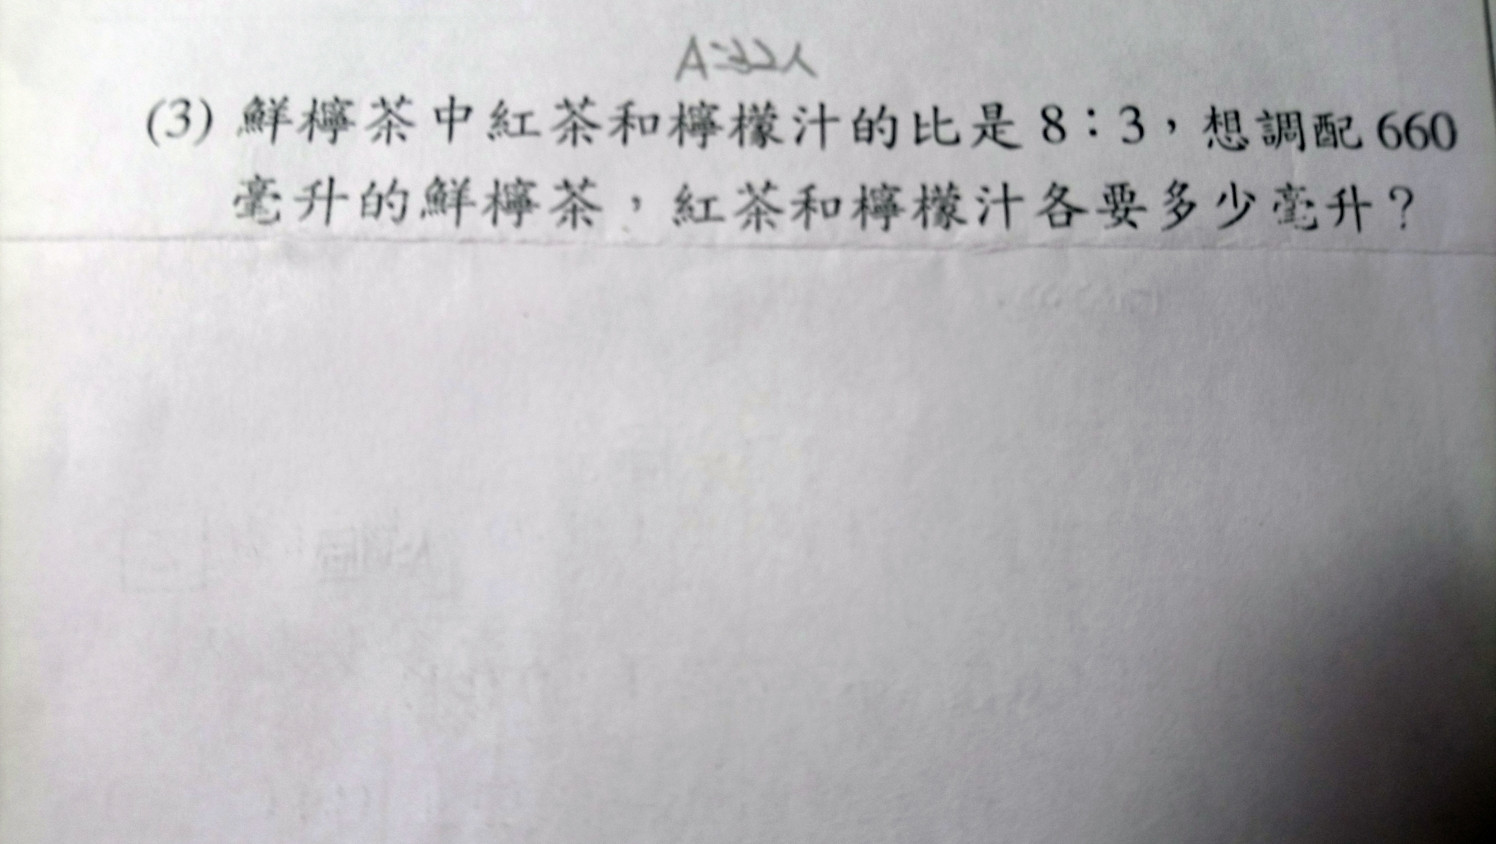 (3) 鮮檸茶中紅茶和檸檬汁的比是8:3,想調配660
毫升的鮮檸茶,紅茶和檸檬汁各要多少毫升?